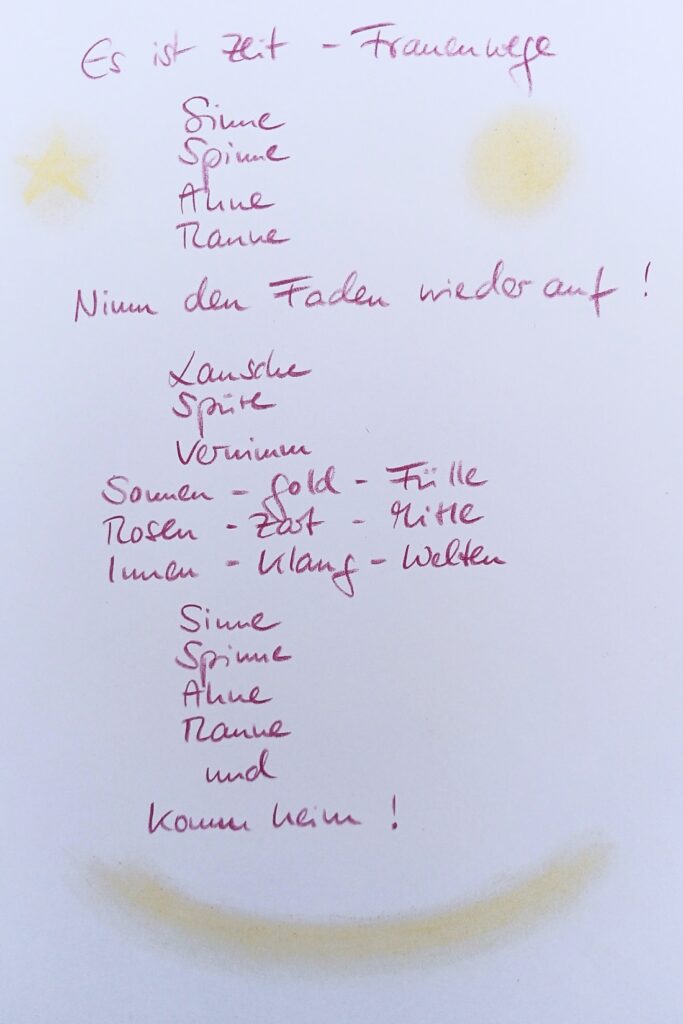 Es ist Zeit - Frauenwege
Sinne
Spinne
Ahne
Raune
Nimm den Faden wieder auf!
Lausche
Spüre
Vernimm
Sonnen - Gold - Fülle
Rosen - Zart - Mitte
Innen - Klang - Welten
Sinne
Spinne
Ahne
Raune
und
komm heim!